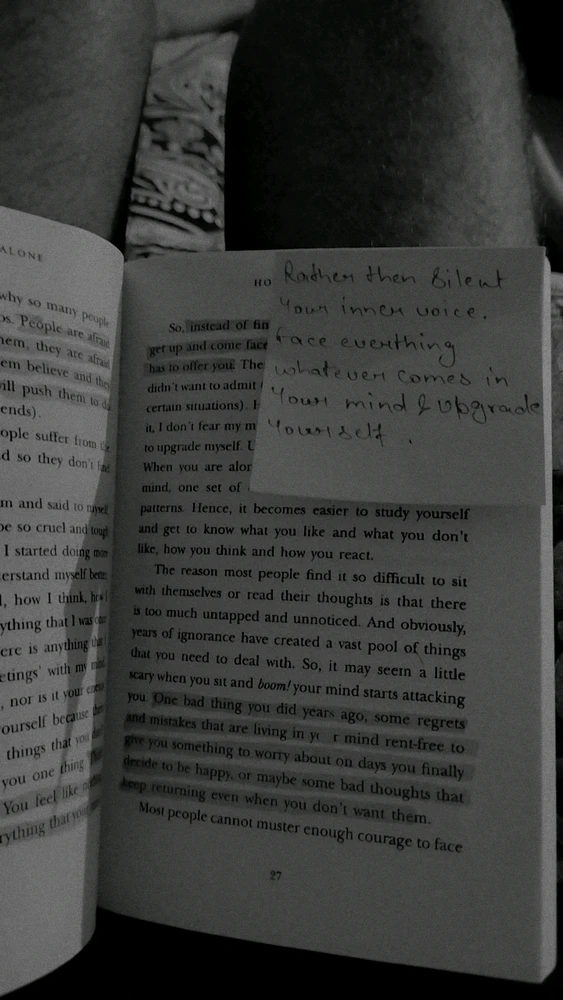 ALONE
why so many people
os. People are afraid
hem, they are afraid
em believe and they
vill push them to
ends).
ople suffer from
d so they don't
m and said to myself
be so cruel and tough
I started doing more
erstand myself better
l, how I think, how I
ything that I was
ere is anything that
etings' with my mind
, nor is it your
ourself because
things that you
you one thing
You feel like
rything that you
HO
Rather then Silent
Your inner voice.
face everthing
whatever comes in
Your mind & Upgrade
Yourself.
So, instead of fin
get up and come face
has to offer you. The
didn't want to admit
certain situations). H
it, I don't fear my m
to upgrade myself. U
When you are alor
mind, one set of
patterns. Hence, it becomes easier to study yourself
and get to know what you like and what you don't
like, how you think and how you react.
The reason most people find it so difficult to sit
with themselves or read their thoughts is that there
is too much untapped and unnoticed. And obviously,
years of ignorance have created a vast pool of things
that you need to deal with. So, it may seem a little
scary when you sit and boom! your mind starts attacking
you. One bad thing you did years ago, some regrets
and mistakes that are living in yo r mind rent-free to
give you something to worry about on days you finally
decide to be happy, or maybe some bad thoughts that
keep returning even when you don't want them.
Most people cannot muster enough courage to face
27